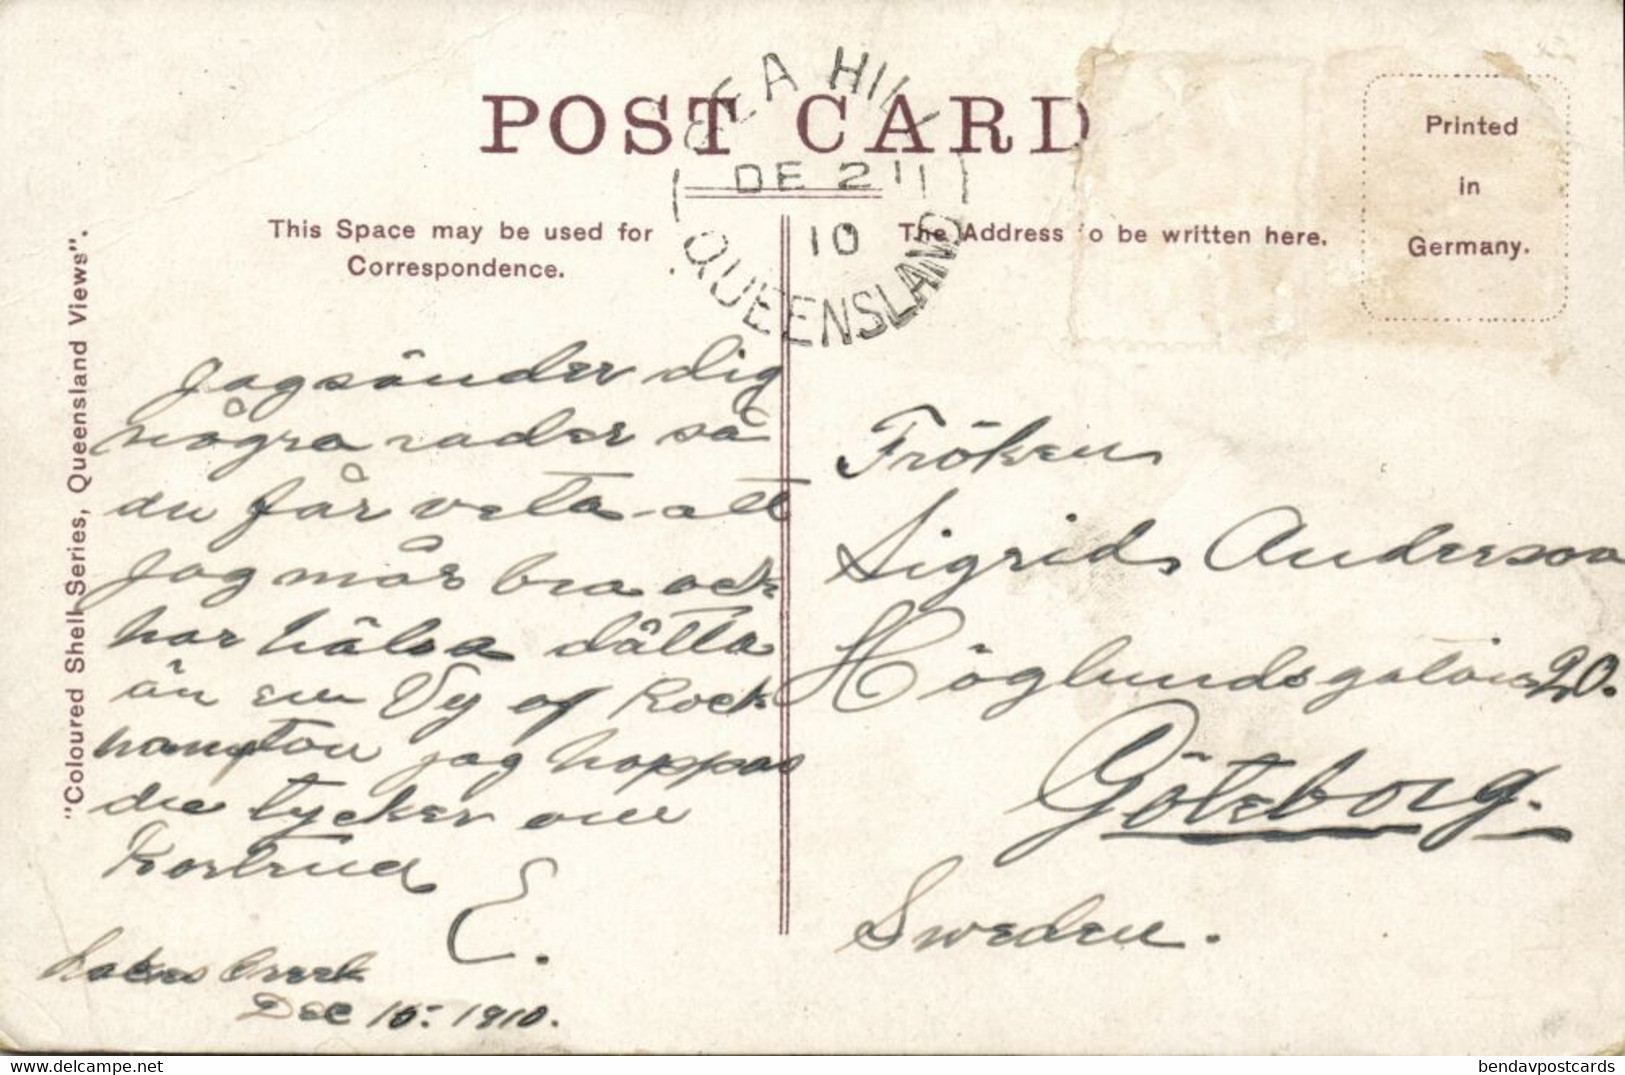 POST CARD
SEA HILL
DE 21
10
QUEENSLAND
Printed
in
Germany.
This Space may be used for
Correspondence.
The Address to be written here.
"Coloured Shell Series, Queensland Views".
Jag sänder dig
några rader så
du får veta att
jag mår bra och
har hälsa dätta
än em Vy of Rock
hampton jag hoppas
du tycker om
Kortrud
E.
Lakes Creek
Dec 15: 1910.
Fröken
Sigrid Anderson
Höglundsgatan 20.
Göteborg.
Sweden.
bendavpostcards